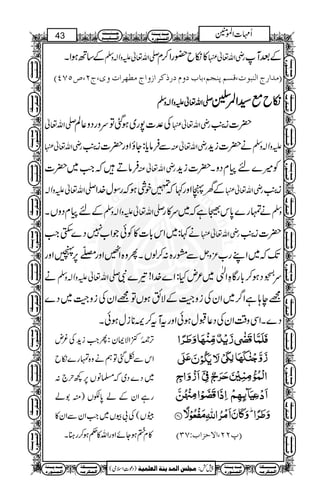 43 اُمہاتُ المؤمنین
کے بعد آپ رضی اللہ تعالیٰ عنہا کا نکاح حضور اکرم صلی اللہ تعالیٰ علیہ والہ وسلم کے ساتھ ہوا۔
(مدارج النبوت،قسم پنجم،باب دوم درذکر ازواج مطہرات وی،ج۲،ص۴۷۵)
نکاح مع سید المرسلین صلی اللہ تعالیٰ علیہ والہ وسلم
حضرت زینب رضی اللہ تعالیٰ عنہا کی عدت پوری ہوگئی تو سرور دو عالم صلی اللہ تعالیٰ
علیہ والہ وسلم نے حضرت زید رضی اللہ تعالیٰ عنہ سے فرمایا: جاؤ اور حضرت زینب رضی اللہ تعالیٰ عنہا
کو میرے لئے پیام دو۔ حضرت زید رضی اللہ تعالیٰ عنہ فرماتے ہیں کہ جب میں حضرت
زینب رضی اللہ تعالیٰ عنہا کے گھر پہنچا اور کہا کہ تمہیں خوشی ہو کہ رسول خدا صلی اللہ تعالیٰ علیہ والہ
وسلم نے تمہارے پاس مجھے بھیجا ہے کہ میں سرکار صلی اللہ تعالیٰ علیہ والہ وسلم کے لئے پیام دوں۔
حضرت زینب رضی اللہ تعالیٰ عنہا نے کہا: میں اس بات کا کوئی جواب نہیں دے سکتی جب
تک کہ میں اپنے رب عزوجل سے مشورہ نہ کرلوں۔ پھر وہ اٹھیں اور مصلے پر پہنچیں اور
سر بسجود ہو کر بارگاہ الٰہی میں عرض کیا: اے خدا! تیرے نبی صلی اللہ تعالیٰ علیہ والہ وسلم نے
مجھے چاہا ہے اگر میں ان کی زوجیت کے لائق ہوں تو مجھے ان کی زوجیت میں دے
دے۔ اسی وقت ان کی دعا قبول ہوئی اور یہ آیہ کریمہ نازل ہوئی۔
فَلَمَّا قَضٰی زَیْدٌ مِّنْهَا وَطَرًا ترجمۂ کنزالایمان: پھر جب زید کی غرض
زَوَّجْنٰكَهَا لِكَیْ لَا یَكُوْنَ عَلَی اس سے نکل گئی تو ہم نے وہ تمہارے نکاح
الْمُؤْمِنِیْنَ حَرَجٌ فِیْۤ اَزْوَاجِ میں دے دی کہ مسلمانوں پر کچھ حرج نہ
اَدْعِیَآىٕهِمْ اِذَا قَضَوْا مِنْهُنَّ رہے ان کے لے پالکوں (منہ بولے
وَطَرًا ؕ وَ كَانَ اَمْرُ اللّٰهِ مَفْعُوْلًا بیٹوں) کی بی بیوں میں جب ان سے ان کا
(پ۲۲،الاحزاب:۳۷) کام ختم ہو جائے اور اللہ کا حکم ہو کر رہنا۔
پیش کش: مجلس المدینة العلمیة (دعوت اسلامی)